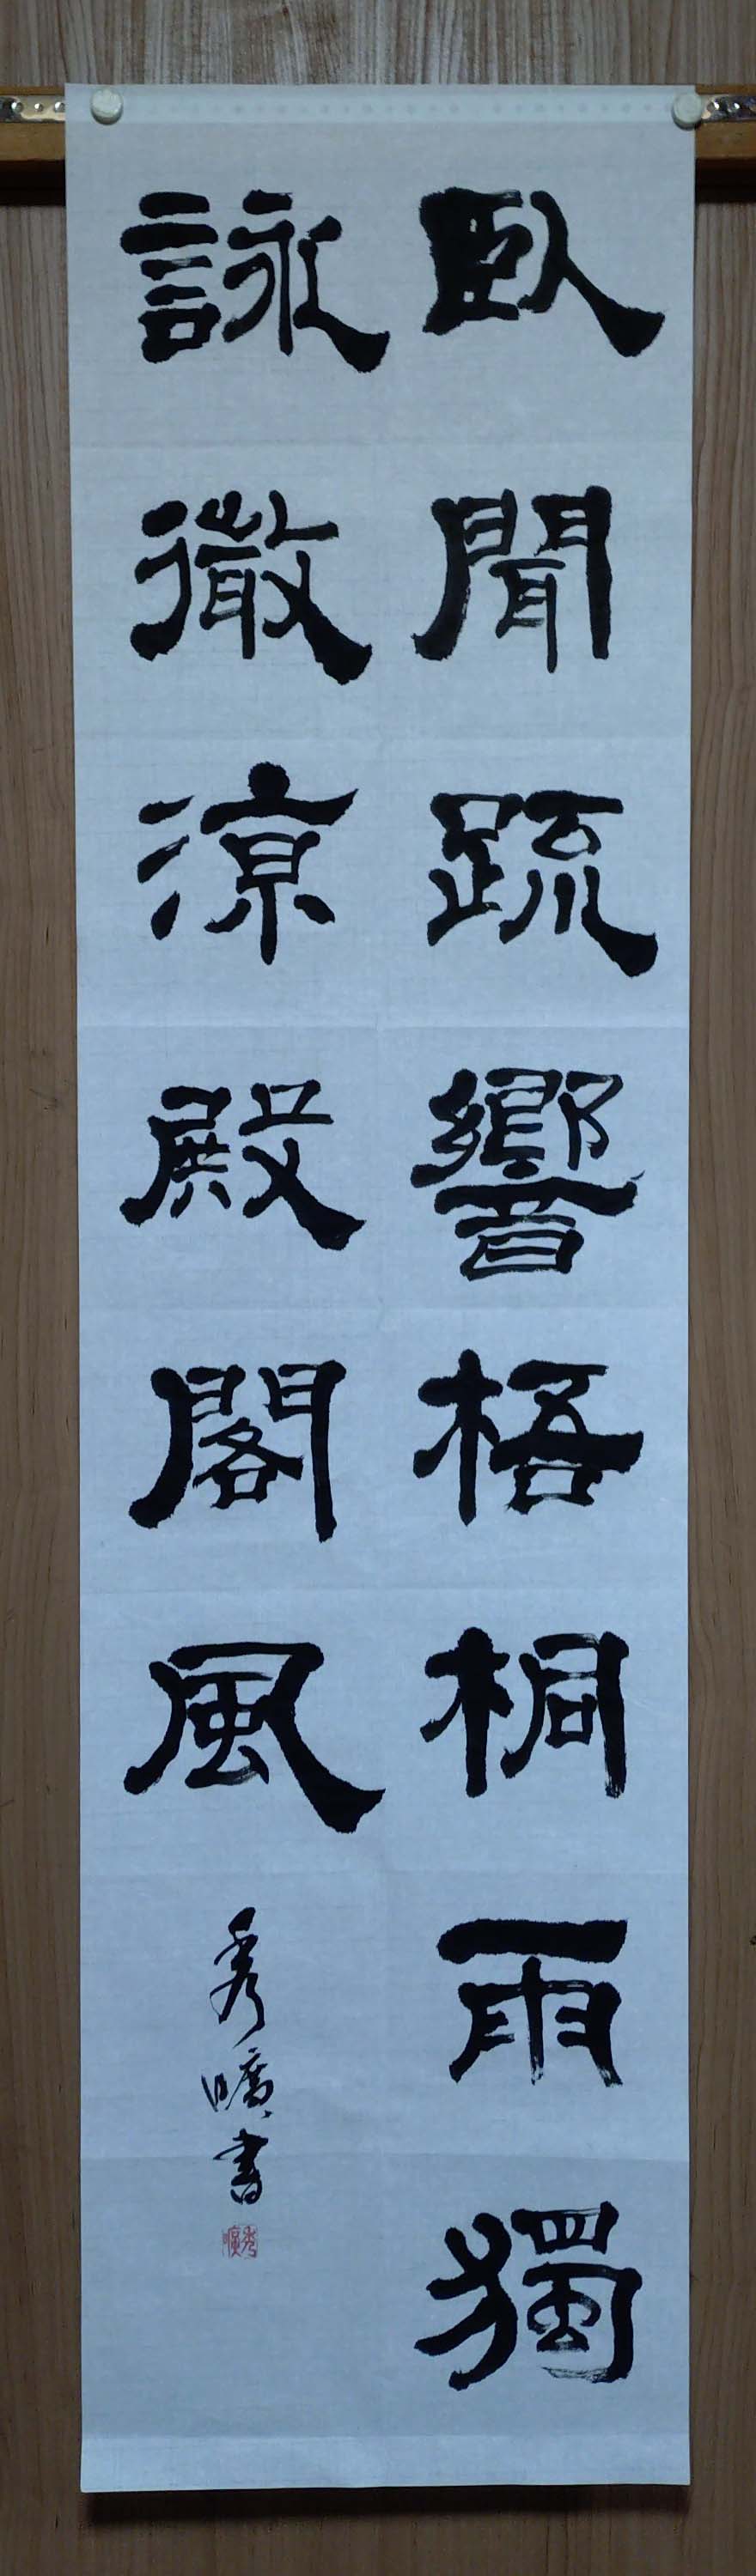 臥聞疏響梧桐雨獨
詠微涼殿閣風
秀曠書
秀曠